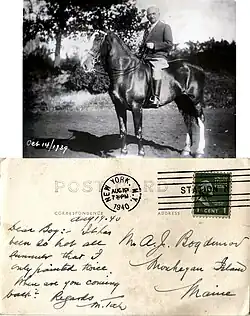 Oct 14/1939
POSTCARD
CORRESPONDENCE
ADDRESS
NEW YORK, N.Y.
AUG 19
7 PM
1940
STATION
1 CENT 1
Aug 19-40
Dear Bog:- It has
been so hot all
summer that I
only painted twice.
When are you coming
back? Regards
Mr A.J. Bogdanov
Monhegan Island
Maine